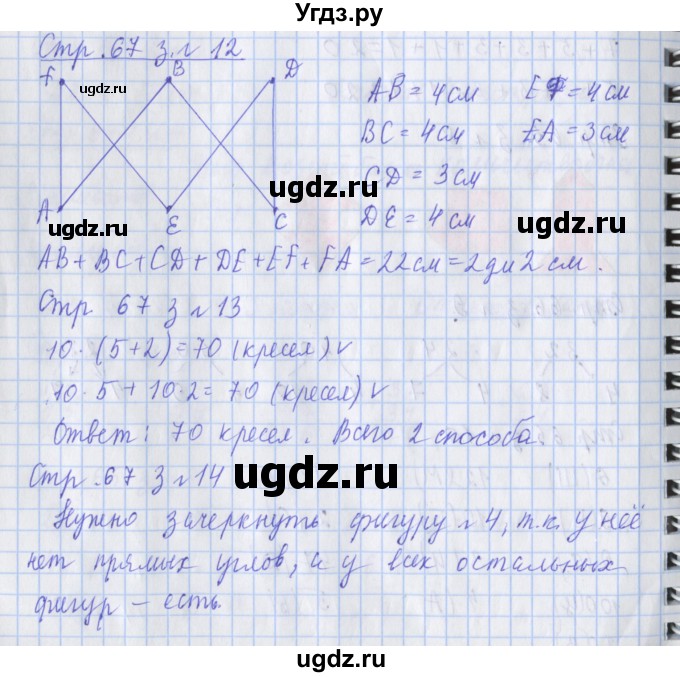 Угдз.ру
Стр. 67 з. № 12
F B D
ugdz.ru ugdz.ru
AB = 4 см EF = 4 см
BC = 4 см EA = 3 см
ugdz.ru
CD = 3 см
ugdz.ru
A E C DE = 4 см
ugdz.ru
AB + BC + CD + DE + EF + FA = 22 см = 2 дм 2 см.
Стр 67 з № 13
ugdz.ru
10 · (5+2) = 70 (кресел) √
ugdz.ru
10 · 5 + 10 · 2 = 70 (кресел) √
Ответ: 70 кресел. Всего 2 способа.
ugdz.ru
Стр. 67 з № 14
Нужно зачеркнуть: фигуру № 4, т.к. у неё
нет прямых углов, а у всех остальных
ugdz.ru
фигур – есть.
ugdz.ru